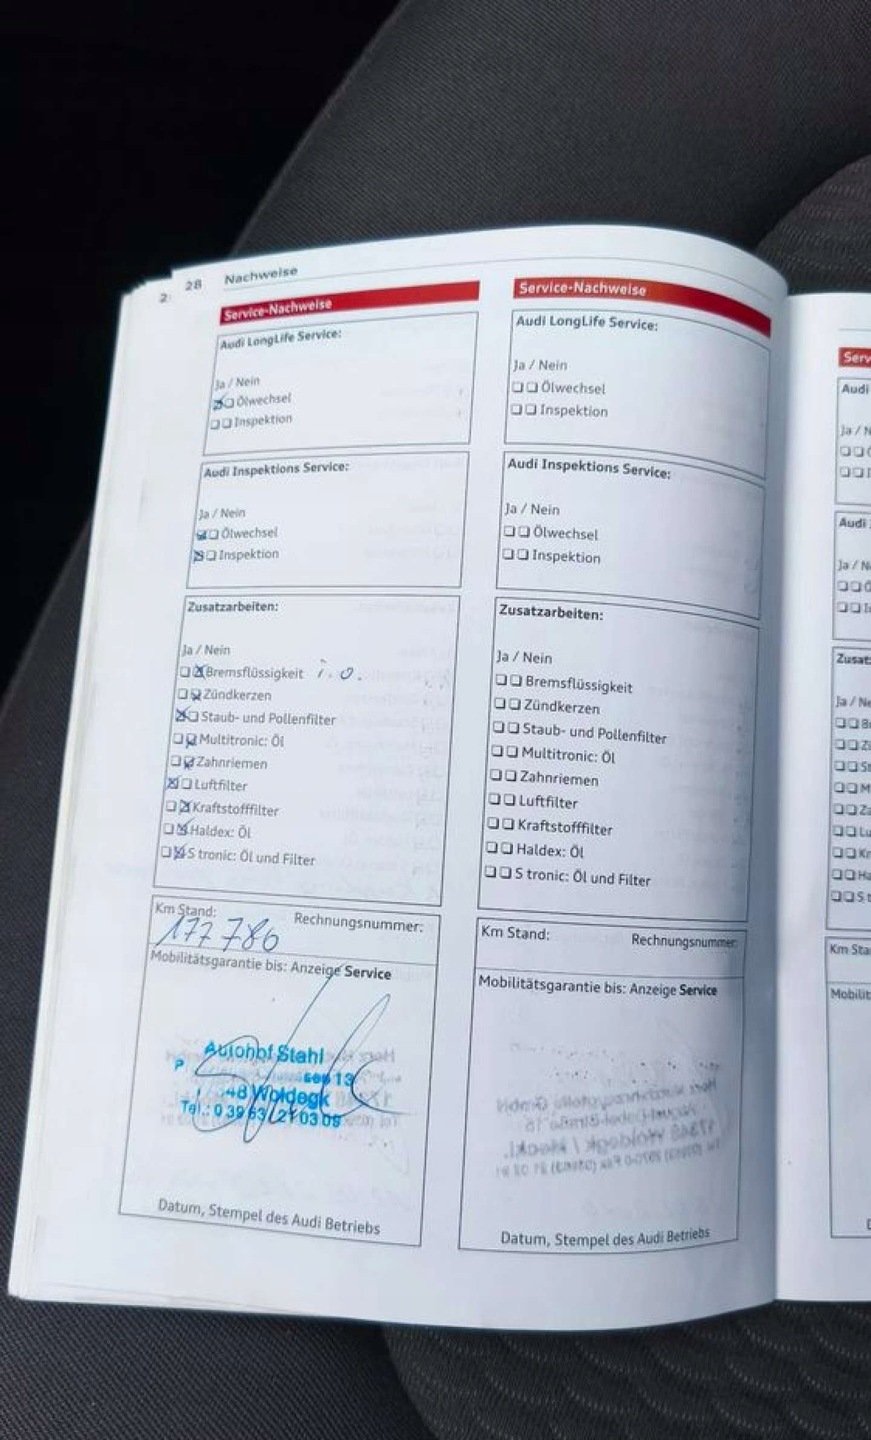 28 Nachweise
2
Service-Nachweise
Audi LongLife Service:
Ja / Nein
Ölwechsel
Inspektion
Audi Inspektions Service:
Ja / Nein
Ölwechsel
Inspektion
Zusatzarbeiten:
Ja / Nein
Bremsflüssigkeit i.o.
Zündkerzen
Staub- und Pollenfilter
Multitronic: Öl
Zahnriemen
Luftfilter
Kraftstofffilter
Haldex: Öl
S tronic: Öl und Filter
Km Stand: Rechnungsnummer:
177 786
Mobilitätsgarantie bis: Anzeige Service
Autohof Stahl
P 13
48 Woldegk
Tel.: 0 39 63 / 21 03 09
Datum, Stempel des Audi Betriebs
Service-Nachweise
Audi LongLife Service:
Ja / Nein
Ölwechsel
Inspektion
Audi Inspektions Service:
Ja / Nein
Ölwechsel
Inspektion
Zusatzarbeiten:
Ja / Nein
Bremsflüssigkeit
Zündkerzen
Staub- und Pollenfilter
Multitronic: Öl
Zahnriemen
Luftfilter
Kraftstofffilter
Haldex: Öl
S tronic: Öl und Filter
Km Stand: Rechnungsnummer:
Mobilitätsgarantie bis: Anzeige Service
Datum, Stempel des Audi Betriebs
Serv
Audi
Ja / N
Audi
Ja / N
Zusat
Ja / Ne
B
Z
St
M
Za
Lu
Kr
Ha
S t
Km Sta
Mobilit